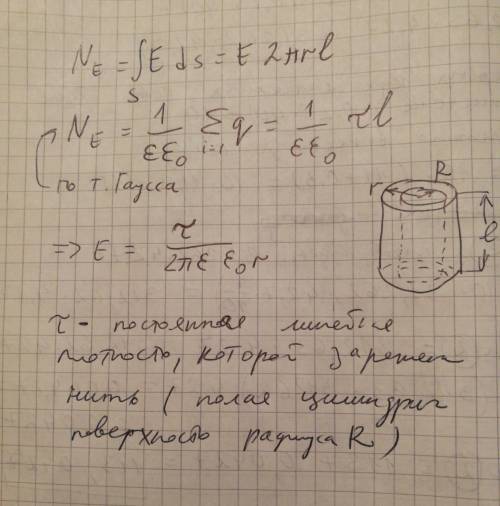 N_E = ∫_S E ds = E 2πrl
N_E = 1/(εε₀) Σ_{i=1} q = 1/(εε₀) τl
по т. Гаусса
R
r
l
=> E = τ/(2πε ε₀ r)
τ - постоянная линейная
плотность, которой заряжена
нить (полая цилиндрич
поверхность радиуса R)